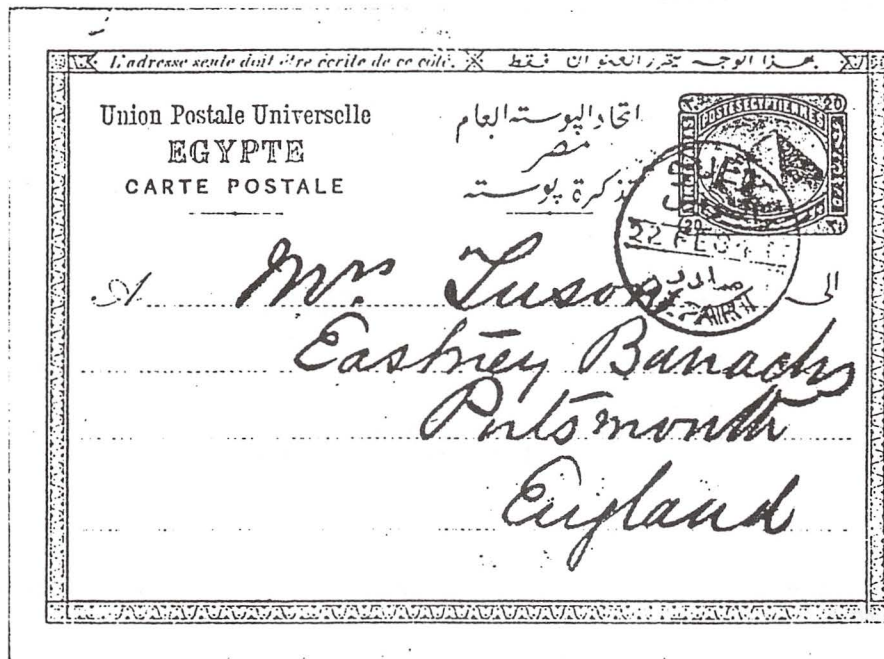 L'adresse seule doit être écrite de ce côté. بهذا الوجه يحرر العنوان فقط
Union Postale Universelle
EGYPTE
CARTE POSTALE
اتحاد البوسته العام
مصر
تذكرة بوسته
POSTES EGYPTIENNES
20 20
20
22 FE 94
صادر
A Mrs. Tuson الى
Eastney Barracks
Portsmouth
England